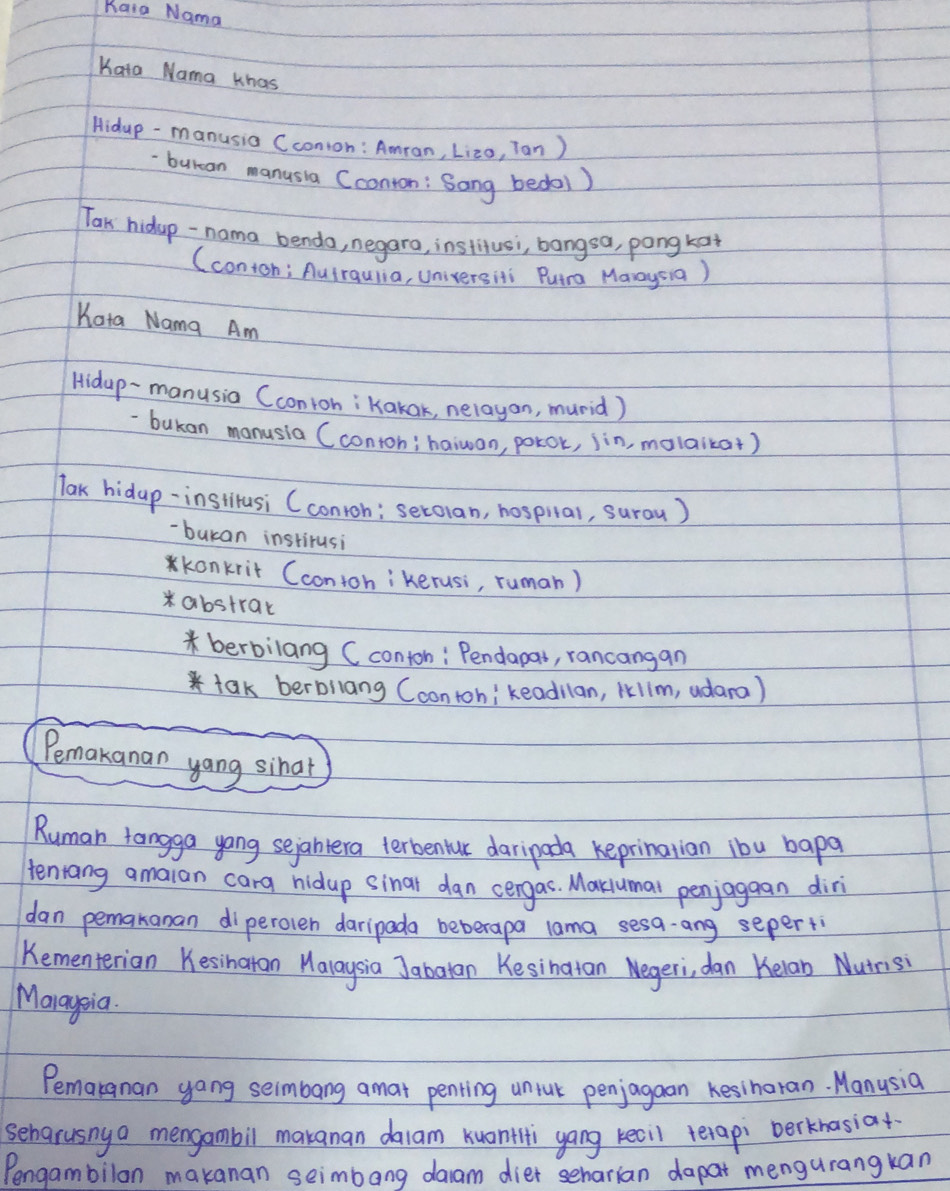 Kata Nama
Kata Nama khas
Hidup - manusia (contoh: Amran, Liza, Tan)
- bukan manusia (contoh: Sang bedal)
Tak hidup - nama benda, negara, institusi, bangsa, pangkat
(contoh: Autraulia, Universiti Putra Malaysia)
Kata Nama Am
Hidup - manusia (contoh: Kakak, nelayan, murid)
- bukan manusia (contoh: haiwan, pokok, jin, malaikat)
Tak hidup - institusi (contoh: sekolah, hospital, surau)
- bukan institusi
*konkrit (contoh: kerusi, rumah)
*abstrak
* berbilang (contoh: Pendapat, rancangan
* tak berbilang (contoh: keadilan, iklim, udara)
Pemakanan yang sihat
Rumah tangga yang sejahtera terbentuk daripada keprihatian ibu bapa
tentang amalan cara hidup sihat dan cergas. Maklumat penjagaan diri
dan pemakanan diperoleh daripada beberapa lama sesa-ang seperti
Kementerian Kesihatan Malaysia Jabatan Kesihatan Negeri, dan Kelab Nutrisi
Malaysia.
Pemakanan yang seimbang amat penting untuk penjagaan kesihatan. Manusia
seharusnya mengambil makanan dalam kuantiti yang kecil tetapi berkhasiat.
Pengambilan makanan seimbang dalam diet seharian dapat mengurangkan